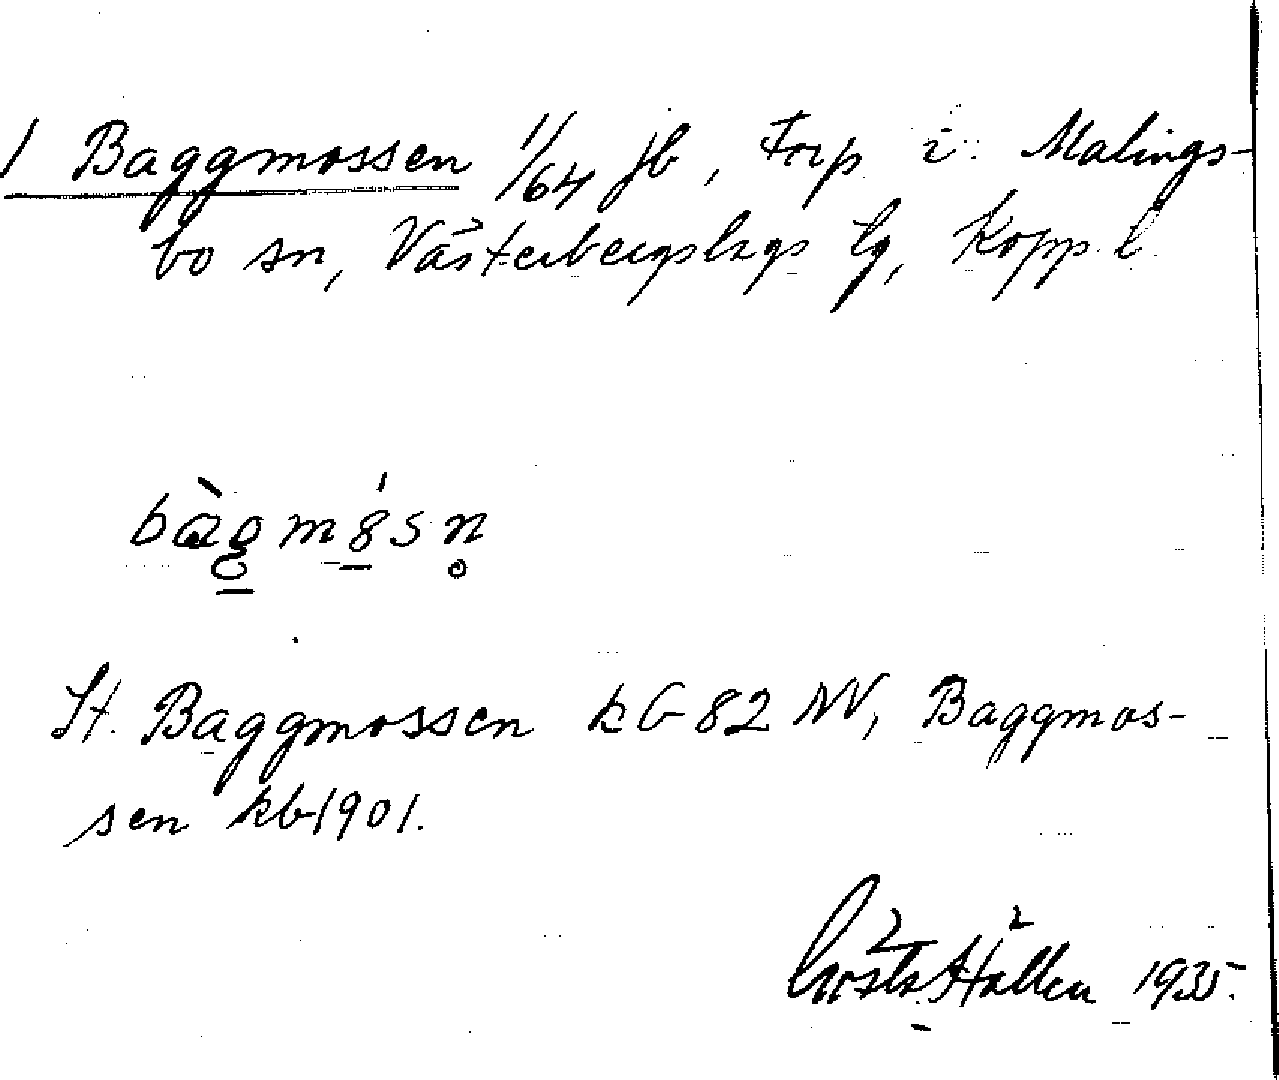 1 Baggmossen 1/64 jb, Torp i Malings-
bo sn, Västerbergslags lg, Kopp. l.
St. Baggmossen kG 82 NV, Baggmos-
sen kb 1901.
Gösta Hallen 1935.